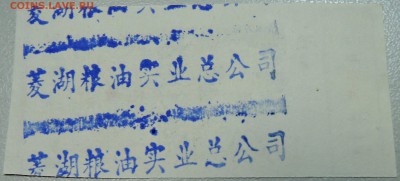 COINS.LAVE.RU
菱湖粮油实业总公司
菱湖粮油实业总公司
菱湖粮油实业总公司